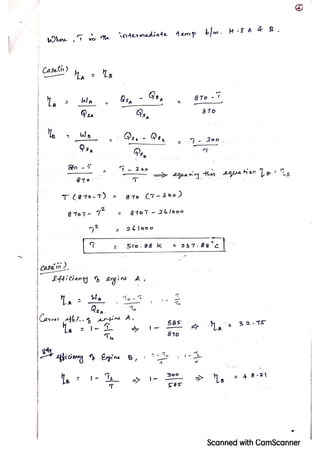 ②
Where, T is the intermediate temp b/w. H.E A & B.
Case(ii) η_A = η_B
η_A = W_A / Q_SA = (Q_SA - Q_RA) / Q_SA = (870 - T) / 870
η_B = W_B / Q_SB = (Q_SB - Q_RB) / Q_SB = (T - 300) / T
(870 - T) / 870 = (T - 300) / T ⇒ equating this equation η_A = η_B
T (870 - T) = 870 (T - 300)
870T - T² = 870T - 261000
T² = 261000
T = 510.88 K = 237.88°C
Case iii)
Efficiency of engine A,
η_A = W_A / Q_SA = (T_h - T) / T_h = 1 - T / T_h
Carnot effi. of engine A.
η_A = 1 - T / T_h ⇒ 1 - 585 / 870 ⇒ η_A = 32.75
efficiency of Engine B,
η_B = 1 - T_L / T ⇒ 1 - 300 / 585 ⇒ η_B = 48.71
Scanned with CamScanner